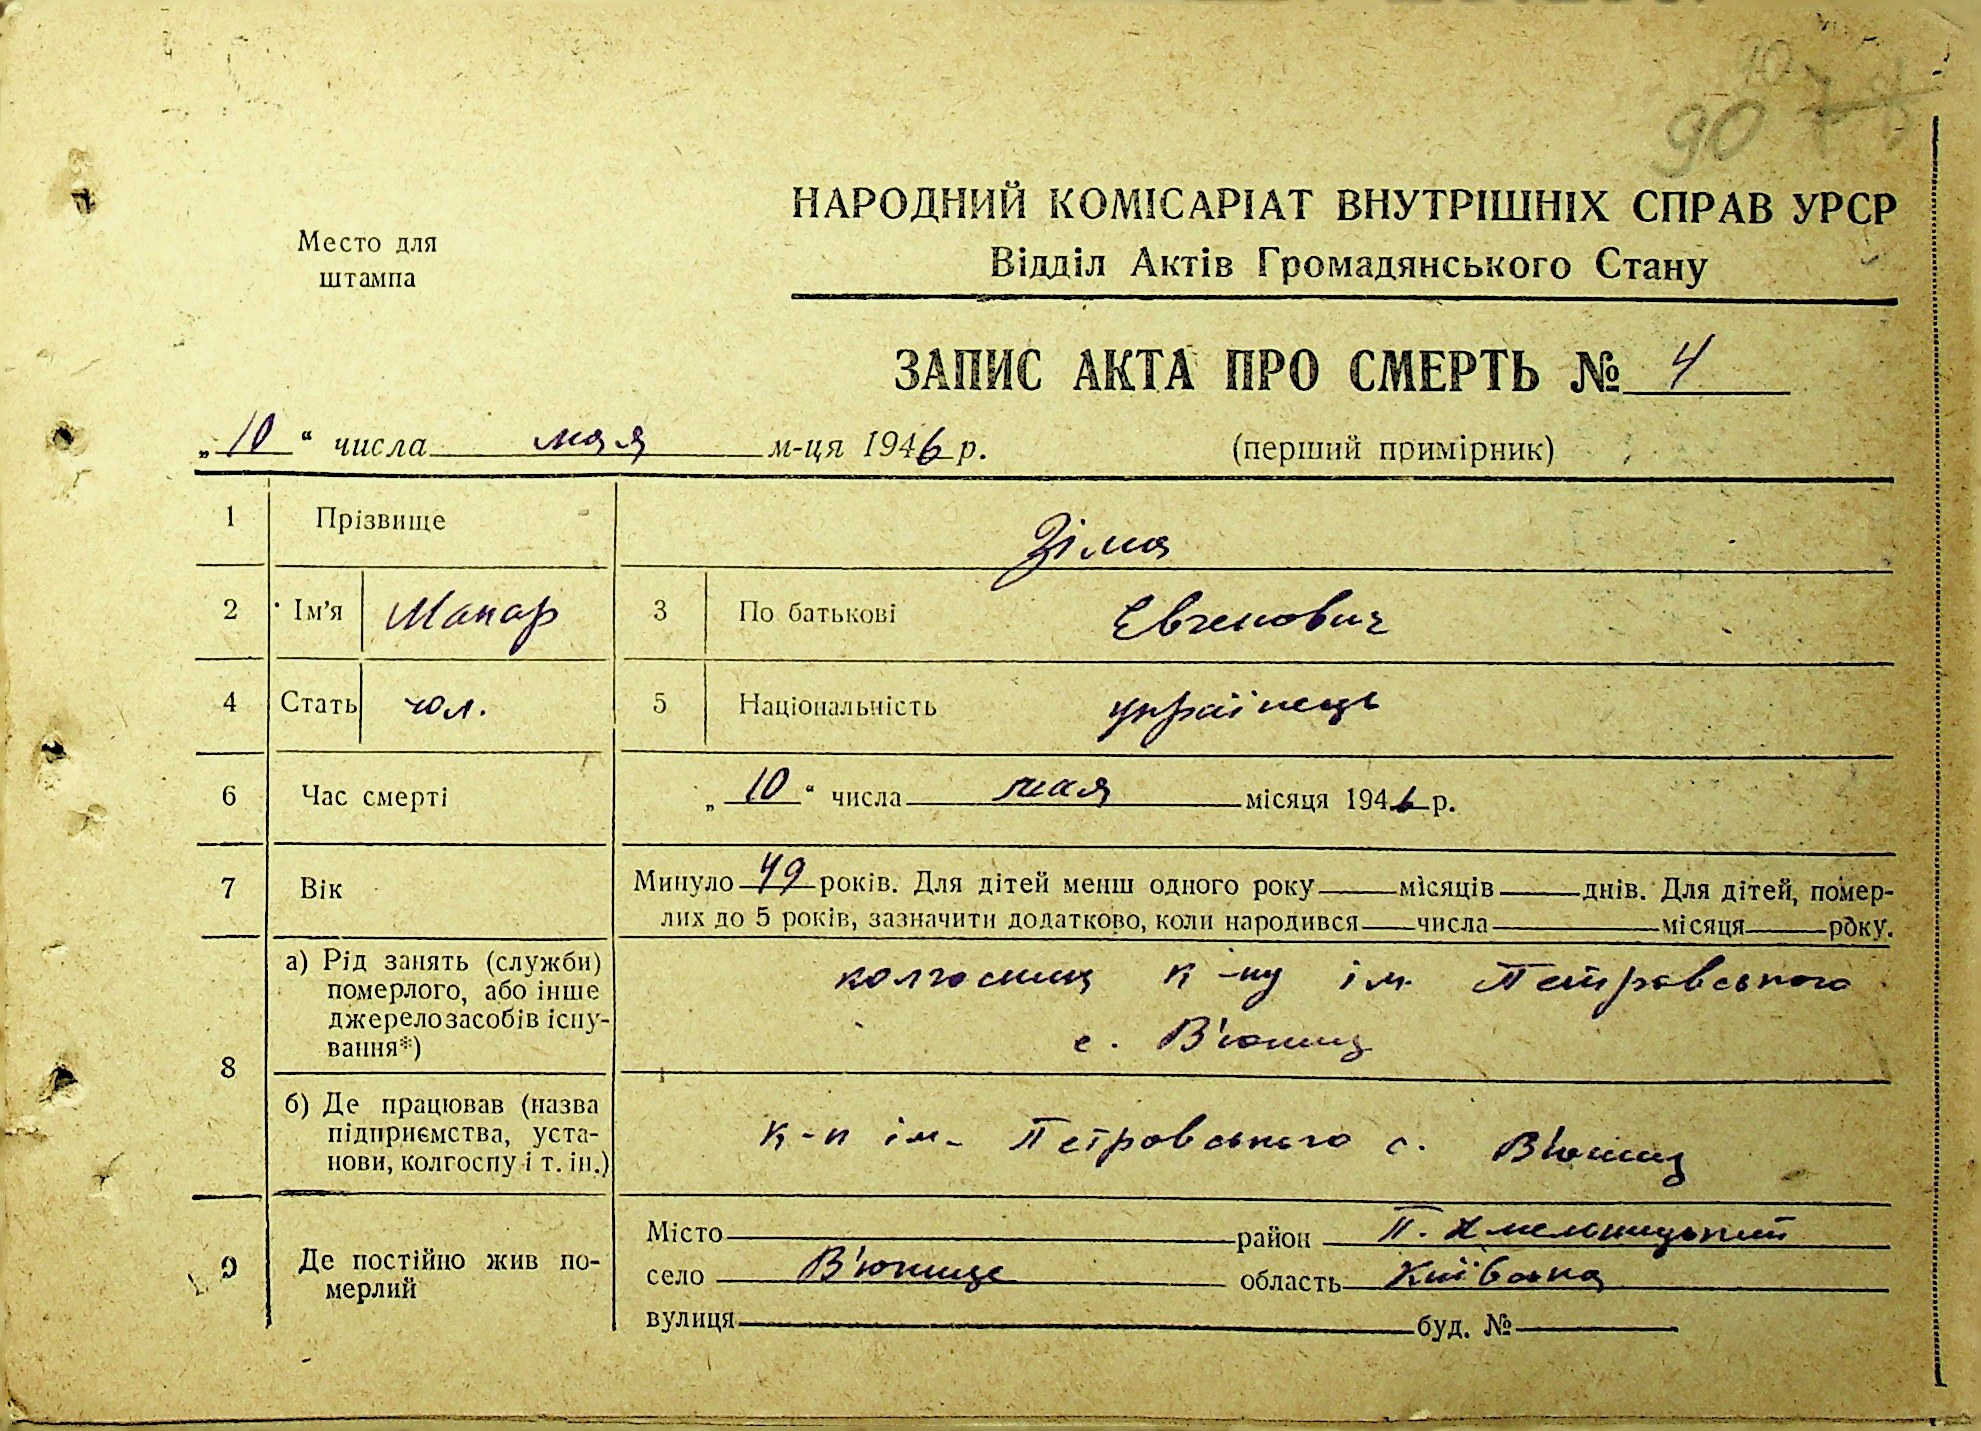 10
90 78
НАРОДНИЙ КОМІСАРІАТ ВНУТРІШНІХ СПРАВ УРСР
Відділ Актів Громадянського Стану
Место для
штампа
ЗАПИС АКТА ПРО СМЕРТЬ № 4
„10“ числа мая м-ця 1946 р.
(перший примірник)
1 Прізвище Зіма
2 Ім'я Макар 3 По батькові Евченович
4 Стать чол. 5 Національність українець
6 Час смерті „10“ числа мая місяця 1946 р.
7 Вік Минуло 49 років. Для дітей менш одного року місяців днів. Для дітей, помер-
лих до 5 років, зазначити додатково, коли народився числа місяця року.
8 а) Рід занять (служби)
померлого, або інше
джерело засобів існу-
вання*)
колгоспник к-пу ім. Петровського
с. В'юнищ
б) Де працював (назва
підприємства, уста-
нови, колгоспу і т. ін.)
к-п ім. Петровського с. В'юнищ
9 Де постійно жив по-
мерлий
Місто район П. Хмельницький
село В'юнище область Київська
вулиця буд. №